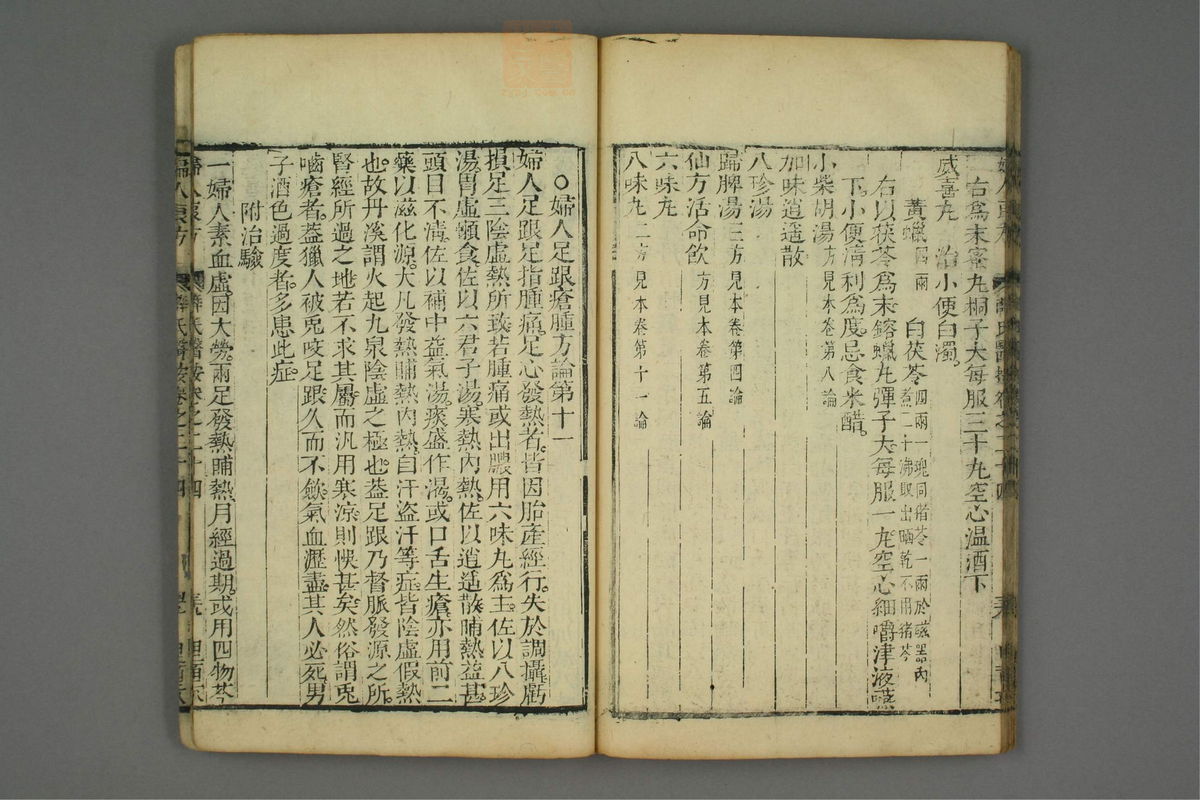 右爲末蜜丸桐子大每服三十丸空心温酒下
威喜丸 治小便白濁
黃蠟四兩 白茯苓四兩一塊同猪苓一兩於磁器內煮二十沸取出晒乾不用猪苓
右以茯苓爲末鎔蠟丸彈子大每服一丸空心細嚼津液嚥
下小便清利爲度忌食米醋
小柴胡湯方見本卷第八論
加味逍遥散
八珍湯
歸脾湯三方見本卷第四論
仙方活命飲方見本卷第五論
六味丸
八味丸二方見本卷第十一論
○婦人足跟瘡腫方論第十一
婦人足跟足指腫痛足心發熱者皆因胎產經行失於調攝虧
損足三陰虛熱所致若腫痛或出膿用六味丸爲主佐以八珍
湯胃虛頓食佐以六君子湯寒熱內熱佐以逍遥散晡熱益甚
頭目不淸佐以補中益氣湯痰盛作渴或口舌生瘡亦用前二
藥以滋化源大凡發熱晡熱內熱自汗盜汗等症皆陰虛假熱
也故丹溪謂火起九泉陰虛之極也葢足跟乃督脈發源之所
腎經所過之地若不求其屬而汎用寒涼則悞甚矣然俗謂兎
嚙瘡者葢獵人被兎咬足跟久而不斂氣血瀝盡其人必死男
子酒色過度者多患此症
附治驗
一婦人素血虛因大勞兩足發熱晡熱月經過期或用四物芩
婦人良方 薛氏醫按卷之二十四